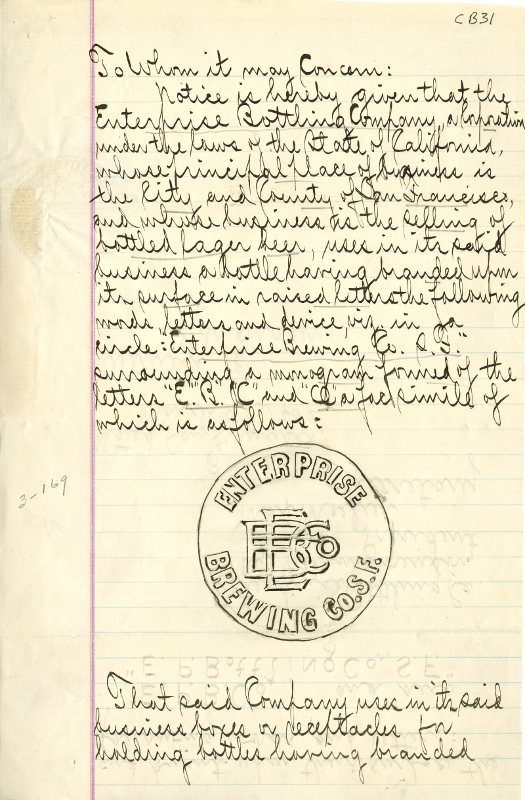 CB31
To Whom it may Concern:
Notice is hereby given that the
Enterprise Bottling Company, a Corporation
under the laws of the State of California,
whose principal place of business is
the City and County of San Francisco,
and whose business is the selling of
bottled Lager Beer, uses in its said
business a bottle having branded upon
its surface in raised letters the following
words, letters and device, viz, in a
circle: "Enterprise Brewing Co. S.F."
surrounding a monogram formed of the
letters "E." "B." "C" and "o" a facsimile of
which is as follows:
3-169
ENTERPRISE
EBCo
BREWING CO. S.F.
"E. P. Bottling Co., S.F."
That said Company uses in its said
business boxes or receptacles for
holding bottles having branded